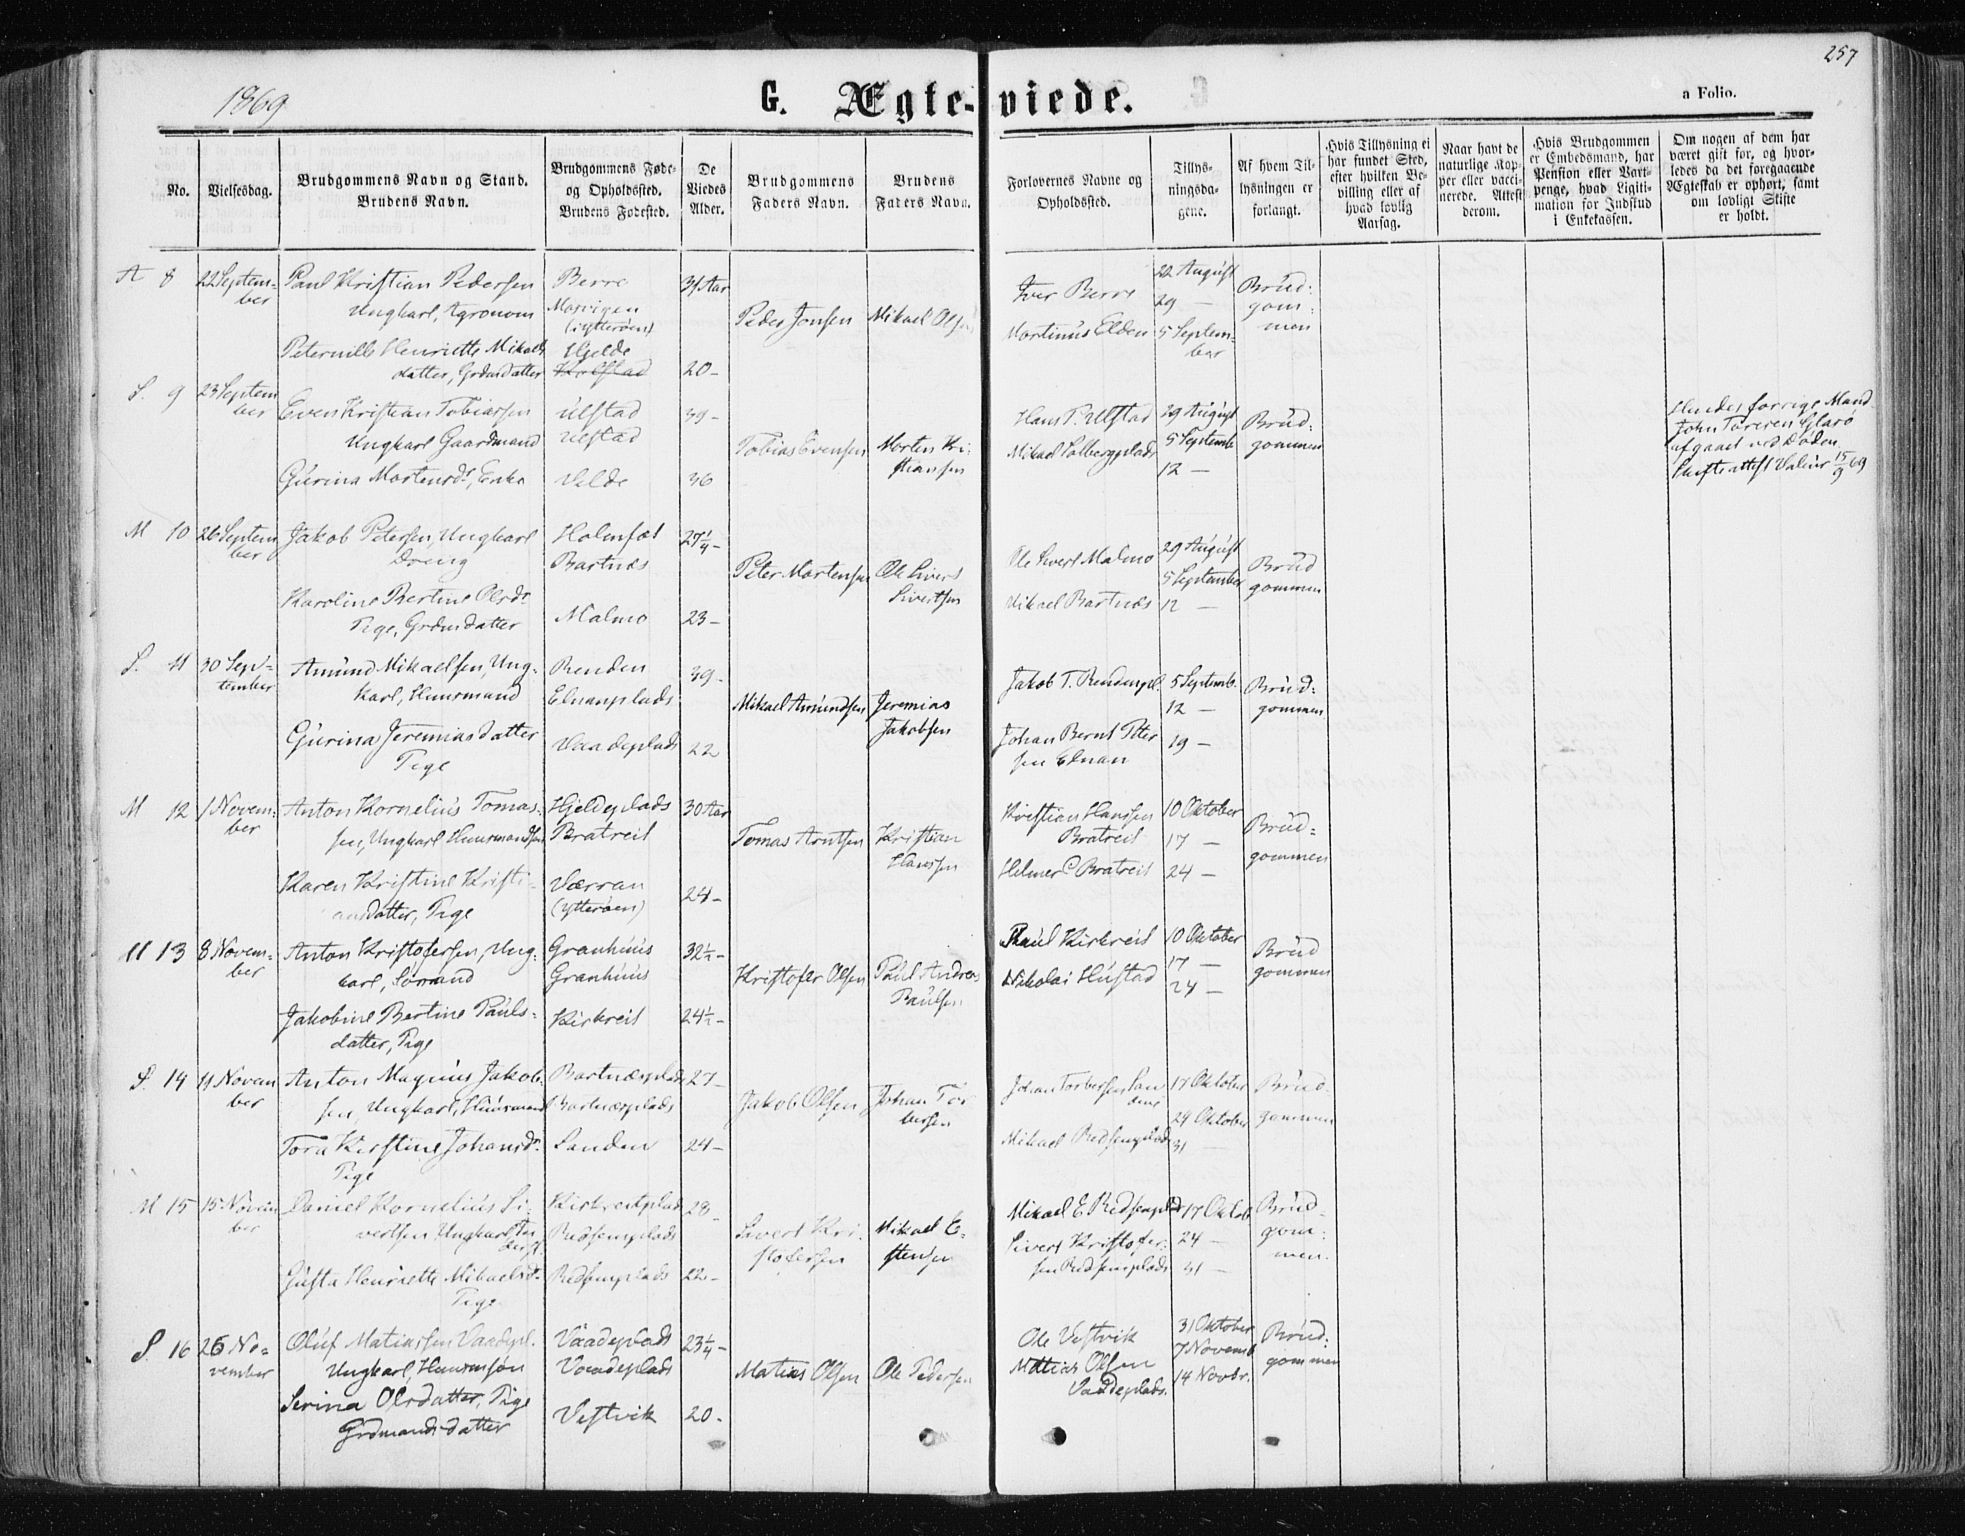 257
1869
G. Ægte-viede.
a Folio.
No.
Vielsesdag.
Brudgommens Navn og Stand.
Brudens Navn.
Brudgommens Føde-
og Opholdssted.
Brudens Fødested.
De
Viedes
Alder.
Brudgommens
Faders Navn.
Brudens
Faders Navn.
Forlovernes Navne og
Opholdssted.
Tillys-
ningsda-
gene.
Af hvem Til-
lysningen er
forlangt.
Hvis Tillysning ei
har fundet Sted,
efter hvilken Be-
villing eller af
hvad lovlig
Aarsag.
Naar havt de
naturlige Kop-
per eller vacci-
nerede. Attest
derom.
Hvis Brudgommen
er Embedsmand, har
Pension eller Vart-
penge, hvad Ligiti-
mation for Indskud
i Enkekassen.
Om nogen af dem har
været gift før, og hvor-
ledes da det foregaaende
Ægteskab er ophørt, samt
om lovligt Skifte
er holdt.
A 8 22 Septem-
ber
Paul Kristian Pedersen
Ungkarl, Agronom
Peternille Henriette Mikaels
datter, Grdmsdatter
Berre
Mosvigen
(Ytterøen)
Hjelde
Kolstad
31 Aar
20-
Peder Jonsen
Mikael Olsen
Iver Berre
Martinus Elden
22 August
29 —
5 Septem-
ber
Brud-
gom-
men
S. 9 23 Septem
ber
Even Kristian Tobiassen
Ungkarl Gaardmand
Gurina Mortensdr, Enke
Ulstad
Ulstad
Velde
39-
36
Tobias Evensen
Morten Kri-
stiansen
Hans T. Ulstad
Mikael Solbergplads
29 August
5 Septemb
12 —
Brud-
gommen
Hendes forrige Mand
John Toresen
afgaaet ved Døden
Skifteattest 15/9 69
M 10 26 Septem
ber
Jakob Petersen, Ungkarl
Dreng
Karoline Bertine Olsdr
Pige, Grdmsdatter
Holmset
Bartnes
Malmo
27¼-
23-
Peter Mortensen
Ole Sivert
Sivertsen
Ole Sivert Malmo
Mikael Bartnes
29 August
5 September
12 —
Brud
gommen
S. 11 30 Sep-
tember
Amund Mikaelsen, Ung-
karl, Huusmand
Gurina Jeremiasdatter
Pige
Renden
Elnanplads
Vaadeplads
39-
22
Mikael Amundsen
Jeremias
Jakobsen
Jakob T. Rendenpl.
Johan Bernt Peter
sen Elnan
5 Septemb.
12 —
19 —
Brud-
gommen
M 12 1 Novem-
ber
Anton Kornelius Tomas-
sen, Ungkarl Huusmandssøn
Karen Kristine Kristi-
ansdatter, Pige
Hjeldeplads
Bratreit
Værran
(Ytterøen)
30 Aar
24-
Tomas Arntsen
Kristian
Hansen
Kristian Hanssen
Bratreit
Helmer C Bratreit
10 Oktober
17 —
24 —
Brud-
gommen
M 13 8 Novem-
ber
Anton Kristofersen, Ung-
karl, Sømand
Jakobine Bertine Pauls-
datter, Pige
Granhuus
Granhuus
Kirkreit
32½-
24½-
Kristofer Olsen
Paul Andreas
Paulsen
Paul Kirkreit
Nikolai Hustad
10 Oktober
17 —
24 —
Brud
gommen
S. 14 11 Novem
ber
Anton Magnus Jakob-
sen, Ungkarl, Huusmand
Tora Kirstine Johansdr
Pige
Bartnesplads
Bartnesplads
Sanden
27-
24-
Jakob Olsen
Johan Tor
bersen
Johan Torbersen San
den
Mikael Redsemplads
17 Oktober
29 Oktober
31 —
Brud-
gommen
M 15 15 Novem
ber
Daniel Kornelius Si-
vertsen Ungkarl
Gusta Henriette Mikaelsdr
Pige
Kirkreitplads
Redsemplads
Redsemplads
28-
22-
Sivert Kri-
stofersen
Mikael E-
stensen
Mikael E Redsemplads
Sivert Kristofer-
sen Redsemplads
17 Oktob
24 —
31 —
Brud-
gom-
men.
S. 16 26 No-
vember
Oluf Matiassen Vaadepl.
Ungkarl, Huusmsøn
Serina Olsdatter, Pige
Grdmandsdatter
Vaadeplads
Vaadeplads
Vestvik
23¼-
20-
Matias Olsen
Ole Pedersen
Ole Vestvik
Mattias Olsen
Vaadeplads.
31 Oktober
7 Novemb.
14 Novbr.
Brud-
gommen